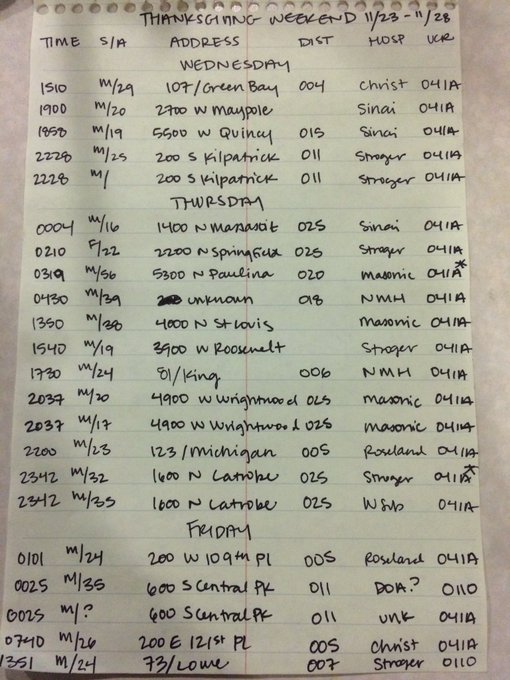 THANKSGIVING WEEKEND 11/23-11/28
TIME S/A ADDRESS DIST HOSP UCR
WEDNESDAY
1510 M/29 107/Green Bay 004 Christ 041A
1900 M/20 2700 W Maypole Sinai 041A
1858 M/19 5500 W Quincy 015 Sinai 041A
2228 M/25 200 S Kilpatrick 011 Stroger 041A
2228 M/ 200 S Kilpatrick 011 Stroger 041A
THURSDAY
0004 M/16 1400 N Massasoit 025 Sinai 041A
0210 F/22 2200 N Springfield 025 Stroger 041A
0319 M/56 5300 N Paulina 020 Masonic 041A*
0430 M/39 unknown 018 NMH 041A
1350 M/38 4000 N St Louis Masonic 041A
1540 M/19 3900 W Roosevelt Stroger 041A
1730 M/24 81/King 006 NMH 041A
2037 M/20 4900 W Wrightwood 025 Masonic 041A
2037 M/17 4900 W Wrightwood 025 Masonic 041A
2200 M/23 123/Michigan 005 Roseland 041A
2342 M/32 1600 N Latrobe 025 Stroger 041A*
2342 M/35 1600 N Latrobe 025 W Sub 041A
FRIDAY
0101 M/24 200 W 109th Pl 005 Roseland 041A
0025 M/35 600 S Central PK 011 DOA? 0110
0025 M/? 600 S Central PK 011 unk 041A
0740 M/26 200 E 121st PL 005 Christ 041A
1351 M/24 73/Lowe 007 Stroger 0110